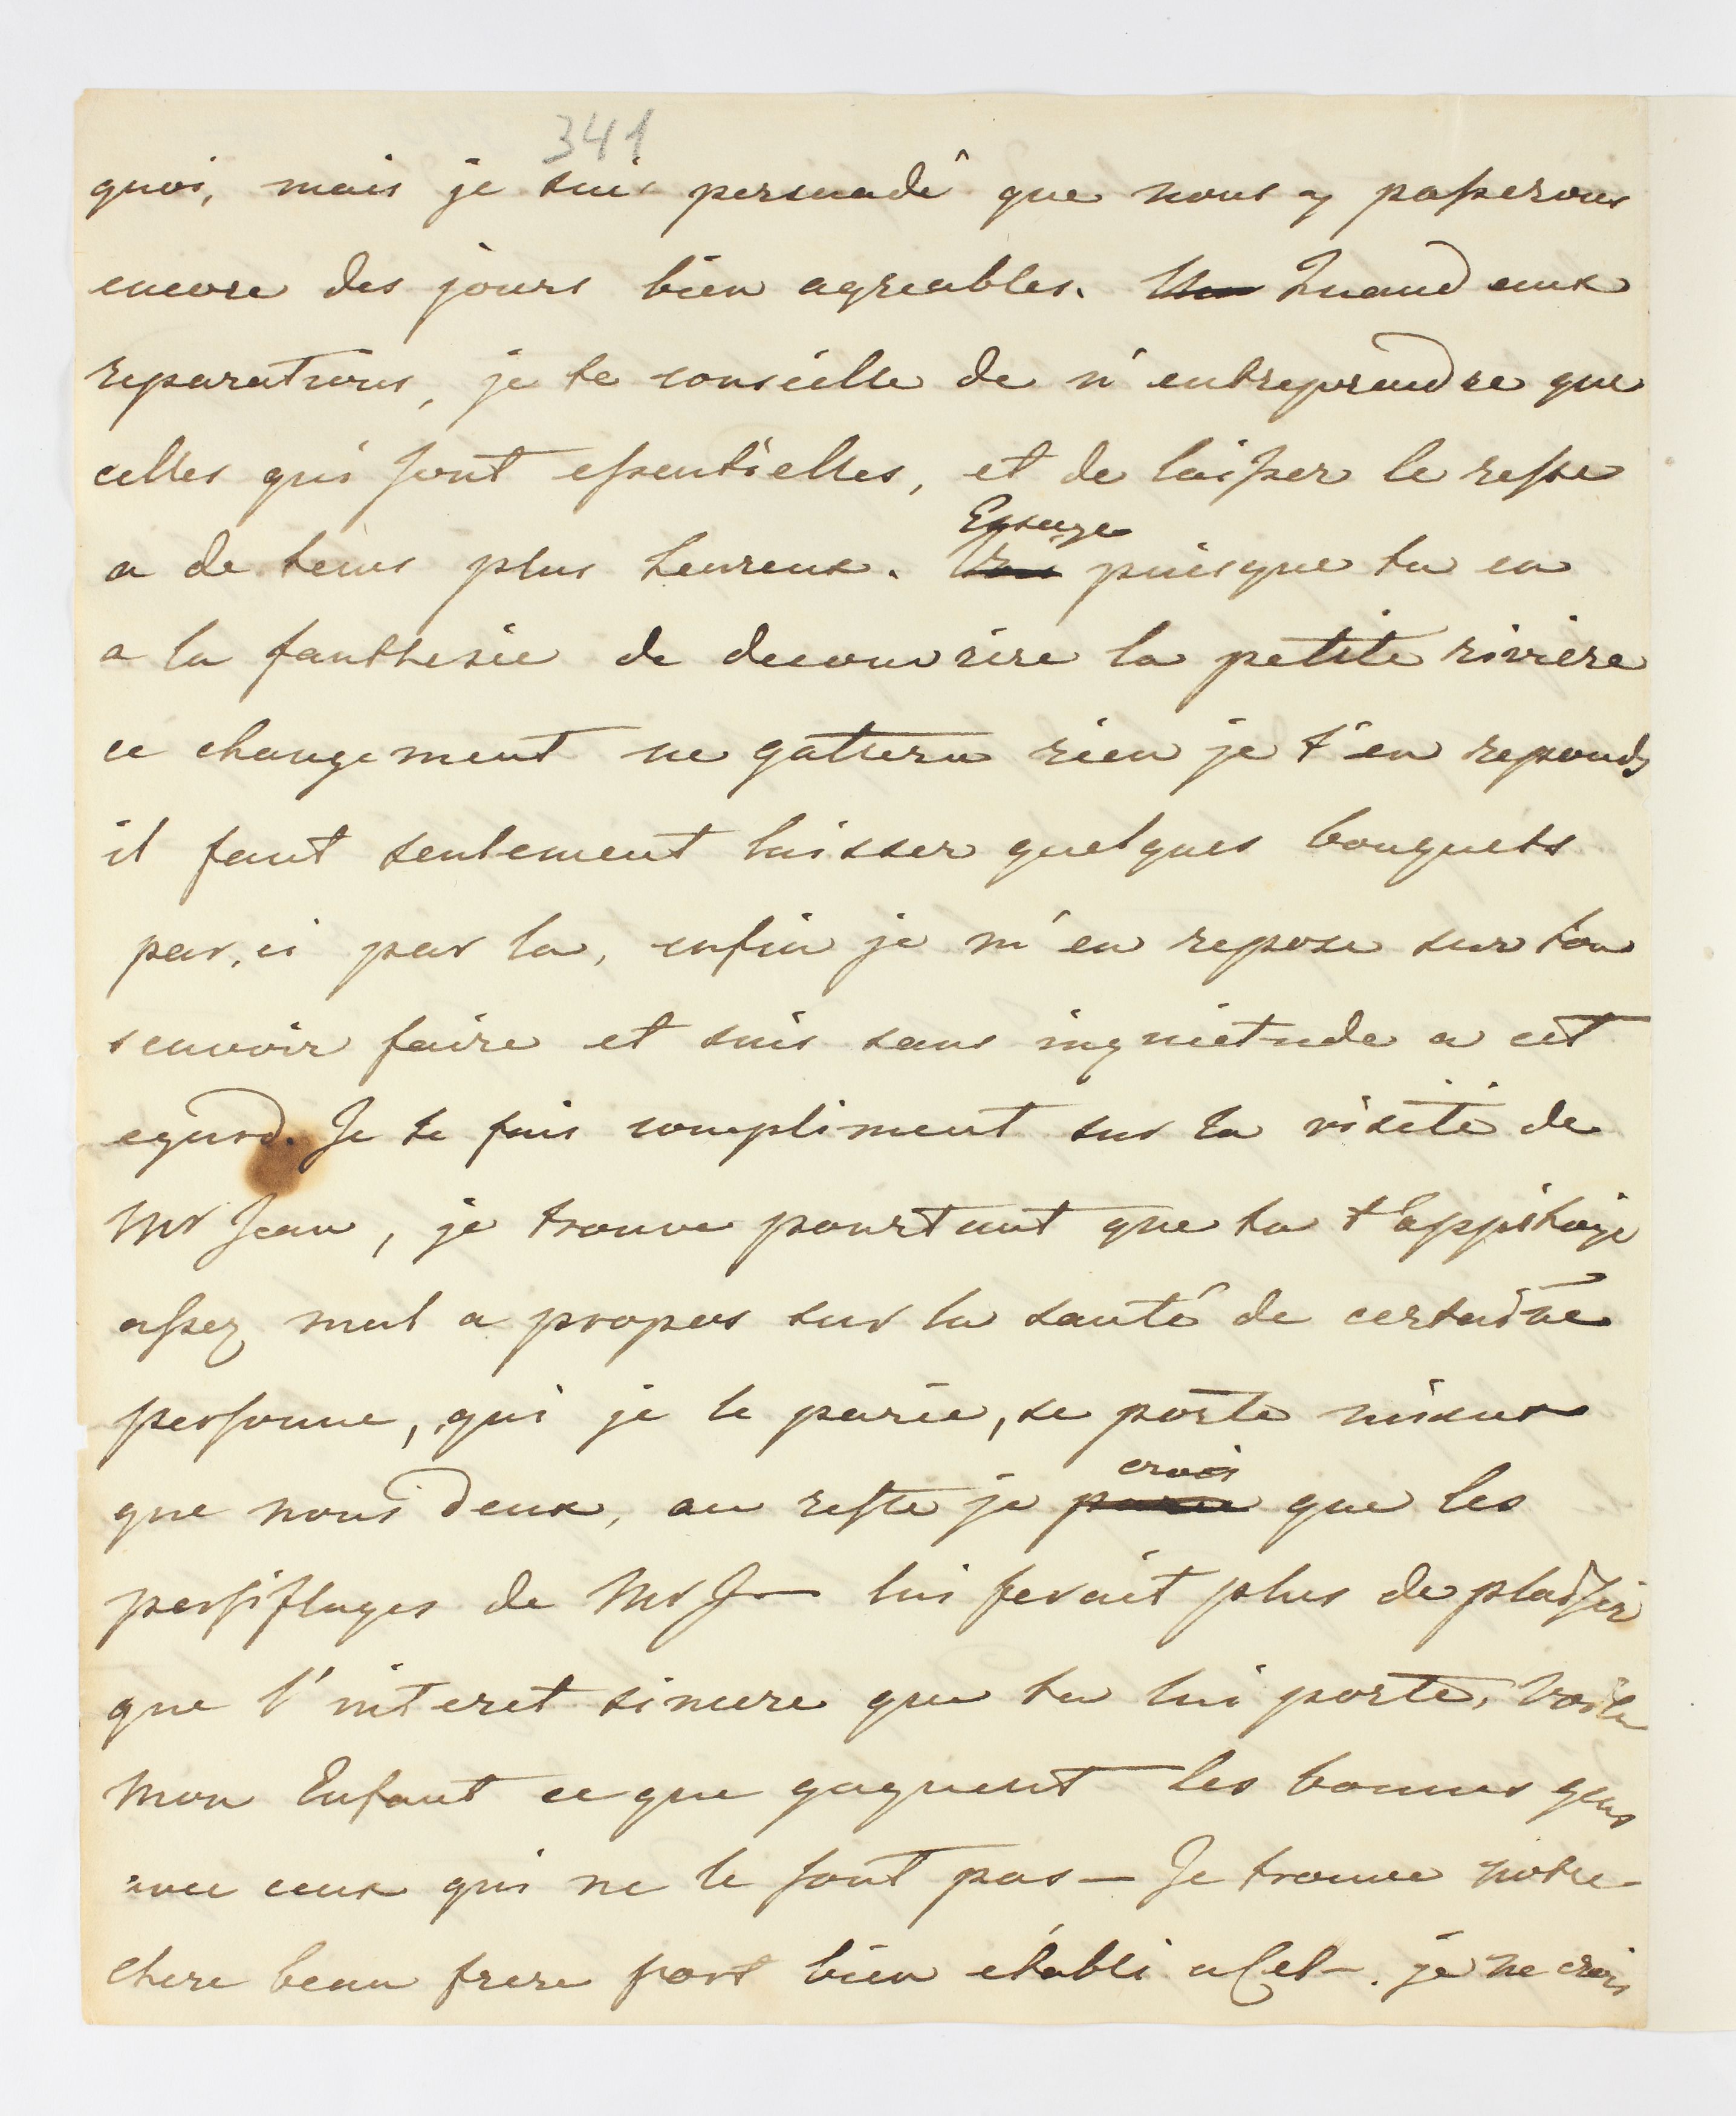 341
quoi, mais je suis persuadé que nous y passerons
encore des jours bien agreables. Quand aux
reparations, je te conseille de n'entreprendre que
celles qui sont essentielles, et de laisser le reste
a de tems plus heureux. puisque tu en
a la fanthesie de decouvrire la petite riviere
ce changement ne gattera rien je t'en reponds
il faut seulement laisser quelques bouquets
par,ci par la, enfin je m'en repose sur ton
scavoir faire et suis sans inquietude a cet
egard. Je te fais compliment sur la visite de
Mr Jean, je trouve pourtant que tu t'appitoije
assez mal a propos sur la santé de certaine
personne, qui je le parie, se porte mieux
que nous deux, au reste je crois que les
persiflages de Mr J— lui ferait plus de plaisir
que l'interet sincere que tu lui porte, voila
mon Enfant ce que gagnent les bonnes gens
avec ceux qui ne le sont pas — Je trouve notre
chere beau frere fort bien etabli a Cel—. je ne crois